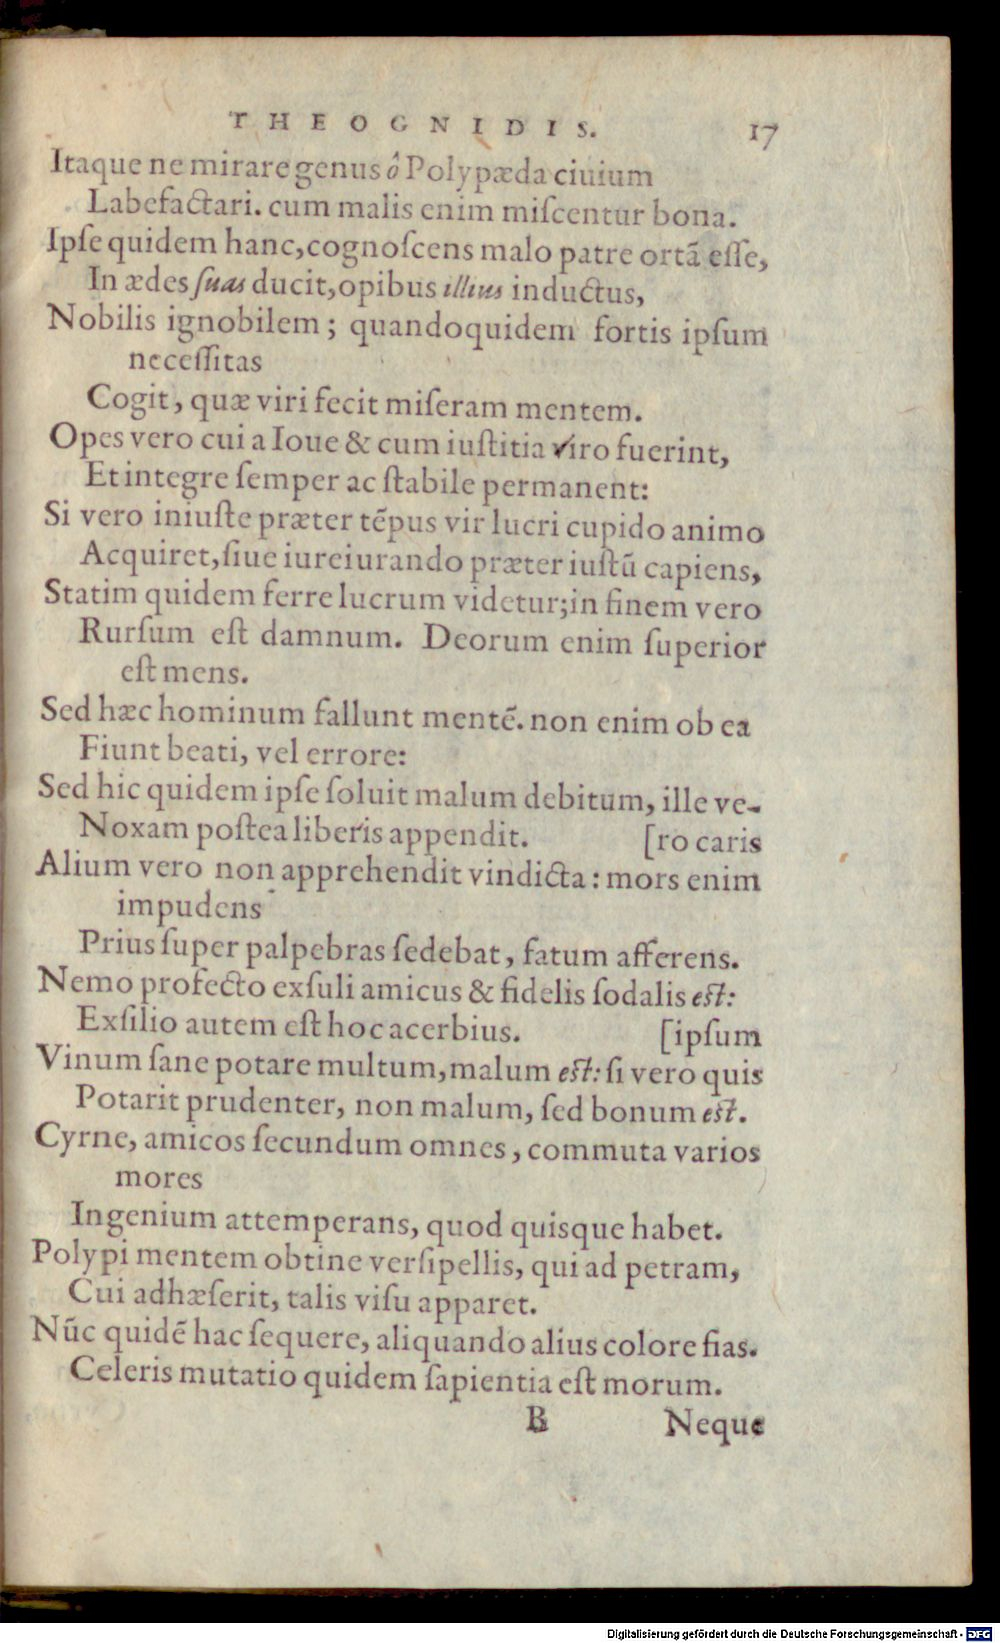 THEOGNIDIS. 17
Itaque ne mirare genus ô Polypæda ciuium
Labefactari. cum malis enim miſcentur bona.
Ipſe quidem hanc, cognoſcens malo patre ortā eſſe,
In ædes ſuas ducit, opibus illius inductus,
Nobilis ignobilem; quandoquidem fortis ipſum
neceſſitas
Cogit, quæ viri fecit miſeram mentem.
Opes vero cui a Ioue & cum iuſtitia viro fuerint,
Et integre ſemper ac ſtabile permanent:
Si vero iniuſte præter tēpus vir lucri cupido animo
Acquiret, ſiue iureiurando præter iuſtū capiens,
Statim quidem ferre lucrum videtur; in finem vero
Rurſum eſt damnum. Deorum enim ſuperior
eſt mens.
Sed hæc hominum fallunt mentē. non enim ob ea
Fiunt beati, vel errore:
Sed hic quidem ipſe ſoluit malum debitum, ille ve-
Noxam poſtea liberis appendit. [ro caris
Alium vero non apprehendit vindicta: mors enim
impudens
Prius ſuper palpebras ſedebat, fatum afferens.
Nemo profecto exſuli amicus & fidelis ſodalis eſt:
Exſilio autem eſt hoc acerbius. [ipſum
Vinum ſane potare multum, malum eſt: ſi vero quis
Potarit prudenter, non malum, ſed bonum eſt.
Cyrne, amicos ſecundum omnes, commuta varios
mores
Ingenium attemperans, quod quisque habet.
Polypi mentem obtine verſipellis, qui ad petram,
Cui adhæſerit, talis viſu apparet.
Nūc quidē hac ſequere, aliquando alius colore fias.
Celeris mutatio quidem ſapientia eſt morum.
B Neque
Digitalisierung gefördert durch die Deutsche Forschungsgemeinschaft - DFG